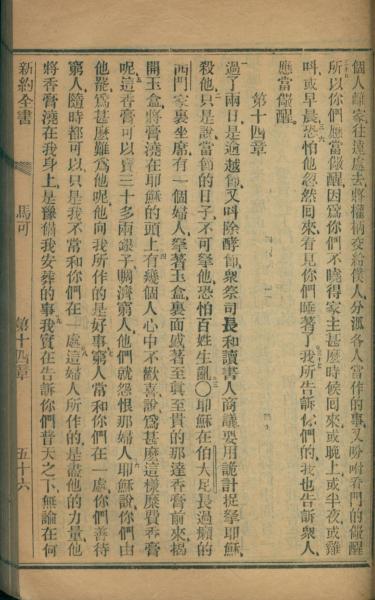 個人離家往遠處去、將權柄交給僕人、分派各人當作的事、又吩咐看門的儆醒
所以你們應當儆醒、因爲你們不曉得家主甚麼時候回來、或晚上、或半夜、或雞
叫、或早晨、恐怕他忽然回來、看見你們睡著了、我所告訴你們的、我也告訴衆人、
應當儆醒、
第十四章
過了兩日、是逾越節、又叫除酵節、衆祭司長和讀書人商議、要用詭計捉拏耶穌、
殺他、只是說、當節的日子、不可拏他、恐怕百姓生亂、〇耶穌在伯大尼長過癩的
西門家裏坐席、有一個婦人、拏著玉盒、裏面盛著至眞至貴的那達香膏前來、搨
開玉盒、將膏澆在耶穌的頭上、有幾個人心中不歡喜、說、爲甚麼這樣糜費香膏
呢、這香膏可以賣三十多兩銀子、賙濟窮人、他們就怨恨那婦人、耶穌說、你們由
他罷、爲甚麼難爲他呢、他向我所作的是好事、窮人常和你們在一處、你們善待
窮人、隨時都可以、只是我不常和你們在一處、這婦人所作的、是盡他的力量、他
將香膏澆在我身上、是豫備我安葬的事、我實在告訴你們、普天之下、無論在何
新約全書　馬可　第十四章　五十六